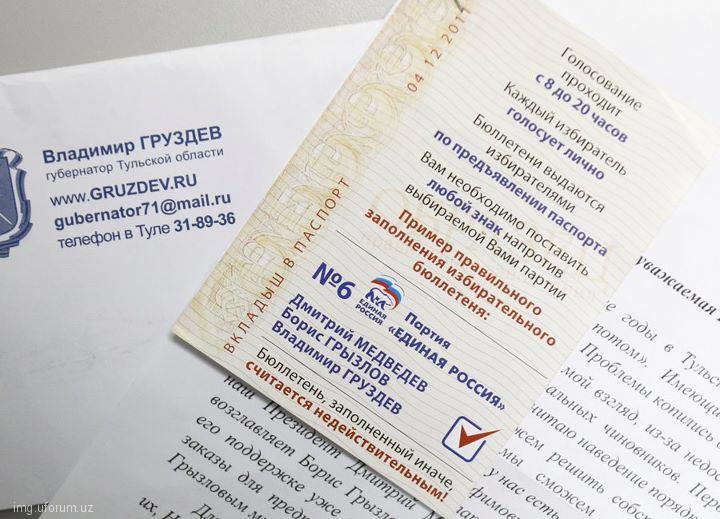 Владимир ГРУЗДЕВ
губернатор Тульской области
www.GRUZDEV.RU
gubernator71@mail.ru
телефон в Туле 31-89-36
ВКЛАДЫШ В ПАСПОРТ
04.12.2011
Голосование
проходит
с 8 до 20 часов
Каждый избиратель
голосует лично
Бюллетени выдаются
избирателями
по предъявлении паспорта
Вам необходимо поставить
любой знак напротив
выбираемой Вами партии
Пример правильного
заполнения избирательного
бюллетеня:
№6
ЕДИНАЯ
РОССИЯ
Партия
"ЕДИНАЯ РОССИЯ"
Дмитрий МЕДВЕДЕВ
Борис ГРЫЗЛОВ
Владимир ГРУЗДЕВ
Бюллетень, заполненный иначе,
считается недействительным!
уважаемая
годы в Тульс
потом». Имеющи
Проблемы копились
мой взгляд, из-за недо
альных чиновников. Пер
читаю наведение порядк
жем решить собс
мы, сможем
у нас есть
наш Президент Дмитрий М
возглавляет Борис Грызло
его поддержке уже
заказы для пред
Грызловым м
их, Н
img.uforum.uz